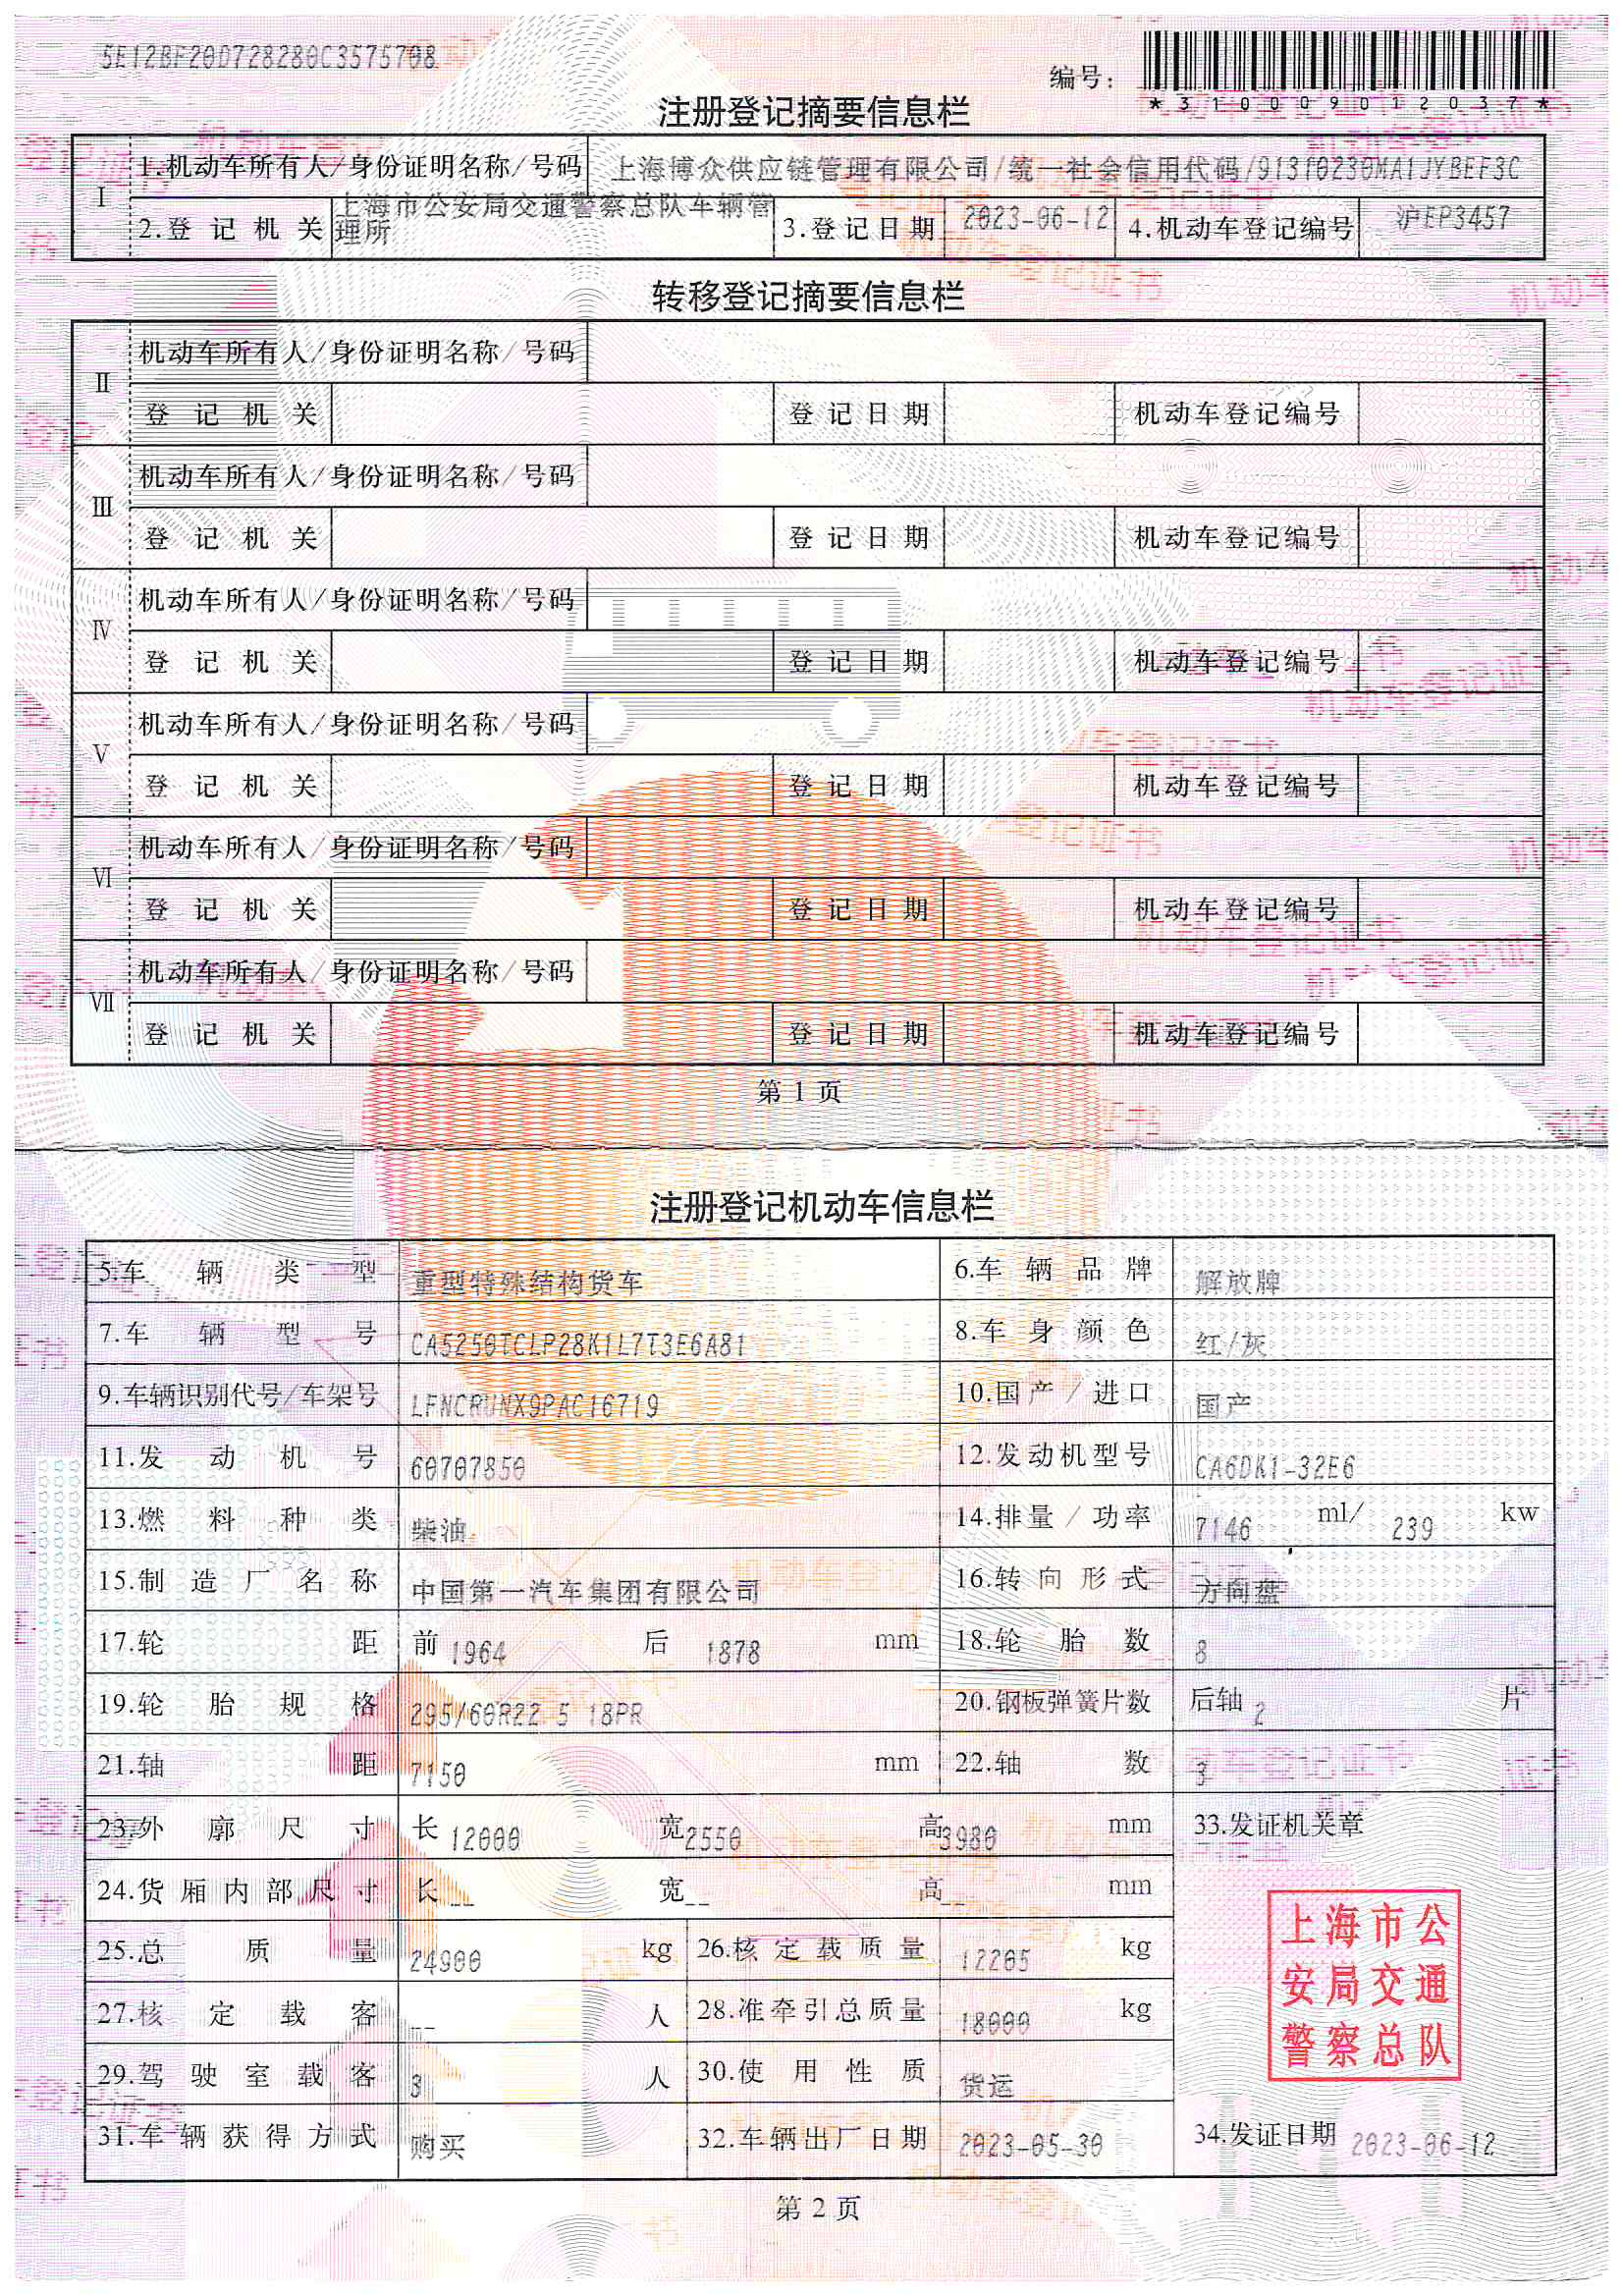 5E12BF20D728280C3575708
编号:
*310009012037*
注册登记摘要信息栏
Ⅰ
1.机动车所有人/身份证明名称/号码 上海博众供应链管理有限公司/统一社会信用代码/91310230MA1JYBEF3C
2.登记机关 上海市公安局交通警察总队车辆管理所 3.登记日期 2023-06-12 4.机动车登记编号 沪EP3457
转移登记摘要信息栏
Ⅱ
机动车所有人/身份证明名称/号码
登记机关 登记日期 机动车登记编号
Ⅲ
机动车所有人/身份证明名称/号码
登记机关 登记日期 机动车登记编号
Ⅳ
机动车所有人/身份证明名称/号码
登记机关 登记日期 机动车登记编号
Ⅴ
机动车所有人/身份证明名称/号码
登记机关 登记日期 机动车登记编号
Ⅵ
机动车所有人/身份证明名称/号码
登记机关 登记日期 机动车登记编号
Ⅶ
机动车所有人/身份证明名称/号码
登记机关 登记日期 机动车登记编号
第 1 页
注册登记机动车信息栏
5.车辆类型 重型特殊结构货车 6.车辆品牌 解放牌
7.车辆型号 CA5250TCLP28K1L7T3E6A81 8.车身颜色 红/灰
9.车辆识别代号/车架号 LFNCRUNX9PAC16719 10.国产/进口 国产
11.发动机号 60707850 12.发动机型号 CA6DK1-32E6
13.燃料种类 柴油 14.排量/功率 7146 ml/ 239 kw
15.制造厂名称 中国第一汽车集团有限公司 16.转向形式 方向盘
17.轮距 前 1964 后 1878 mm 18.轮胎数 8
19.轮胎规格 295/60R22.5 18PR 20.钢板弹簧片数 后轴 2 片
21.轴距 7150 mm 22.轴数 3
23.外廓尺寸 长 12000 宽 2550 高 3980 mm 33.发证机关章
24.货厢内部尺寸 长 -- 宽 -- 高 -- mm
上海市公
安局交通
警察总队
25.总质量 24900 kg 26.核定载质量 12205 kg
27.核定载客 -- 人 28.准牵引总质量 18000 kg
29.驾驶室载客 3 人 30.使用性质 货运
31.车辆获得方式 购买 32.车辆出厂日期 2023-05-30 34.发证日期 2023-06-12
第 2 页